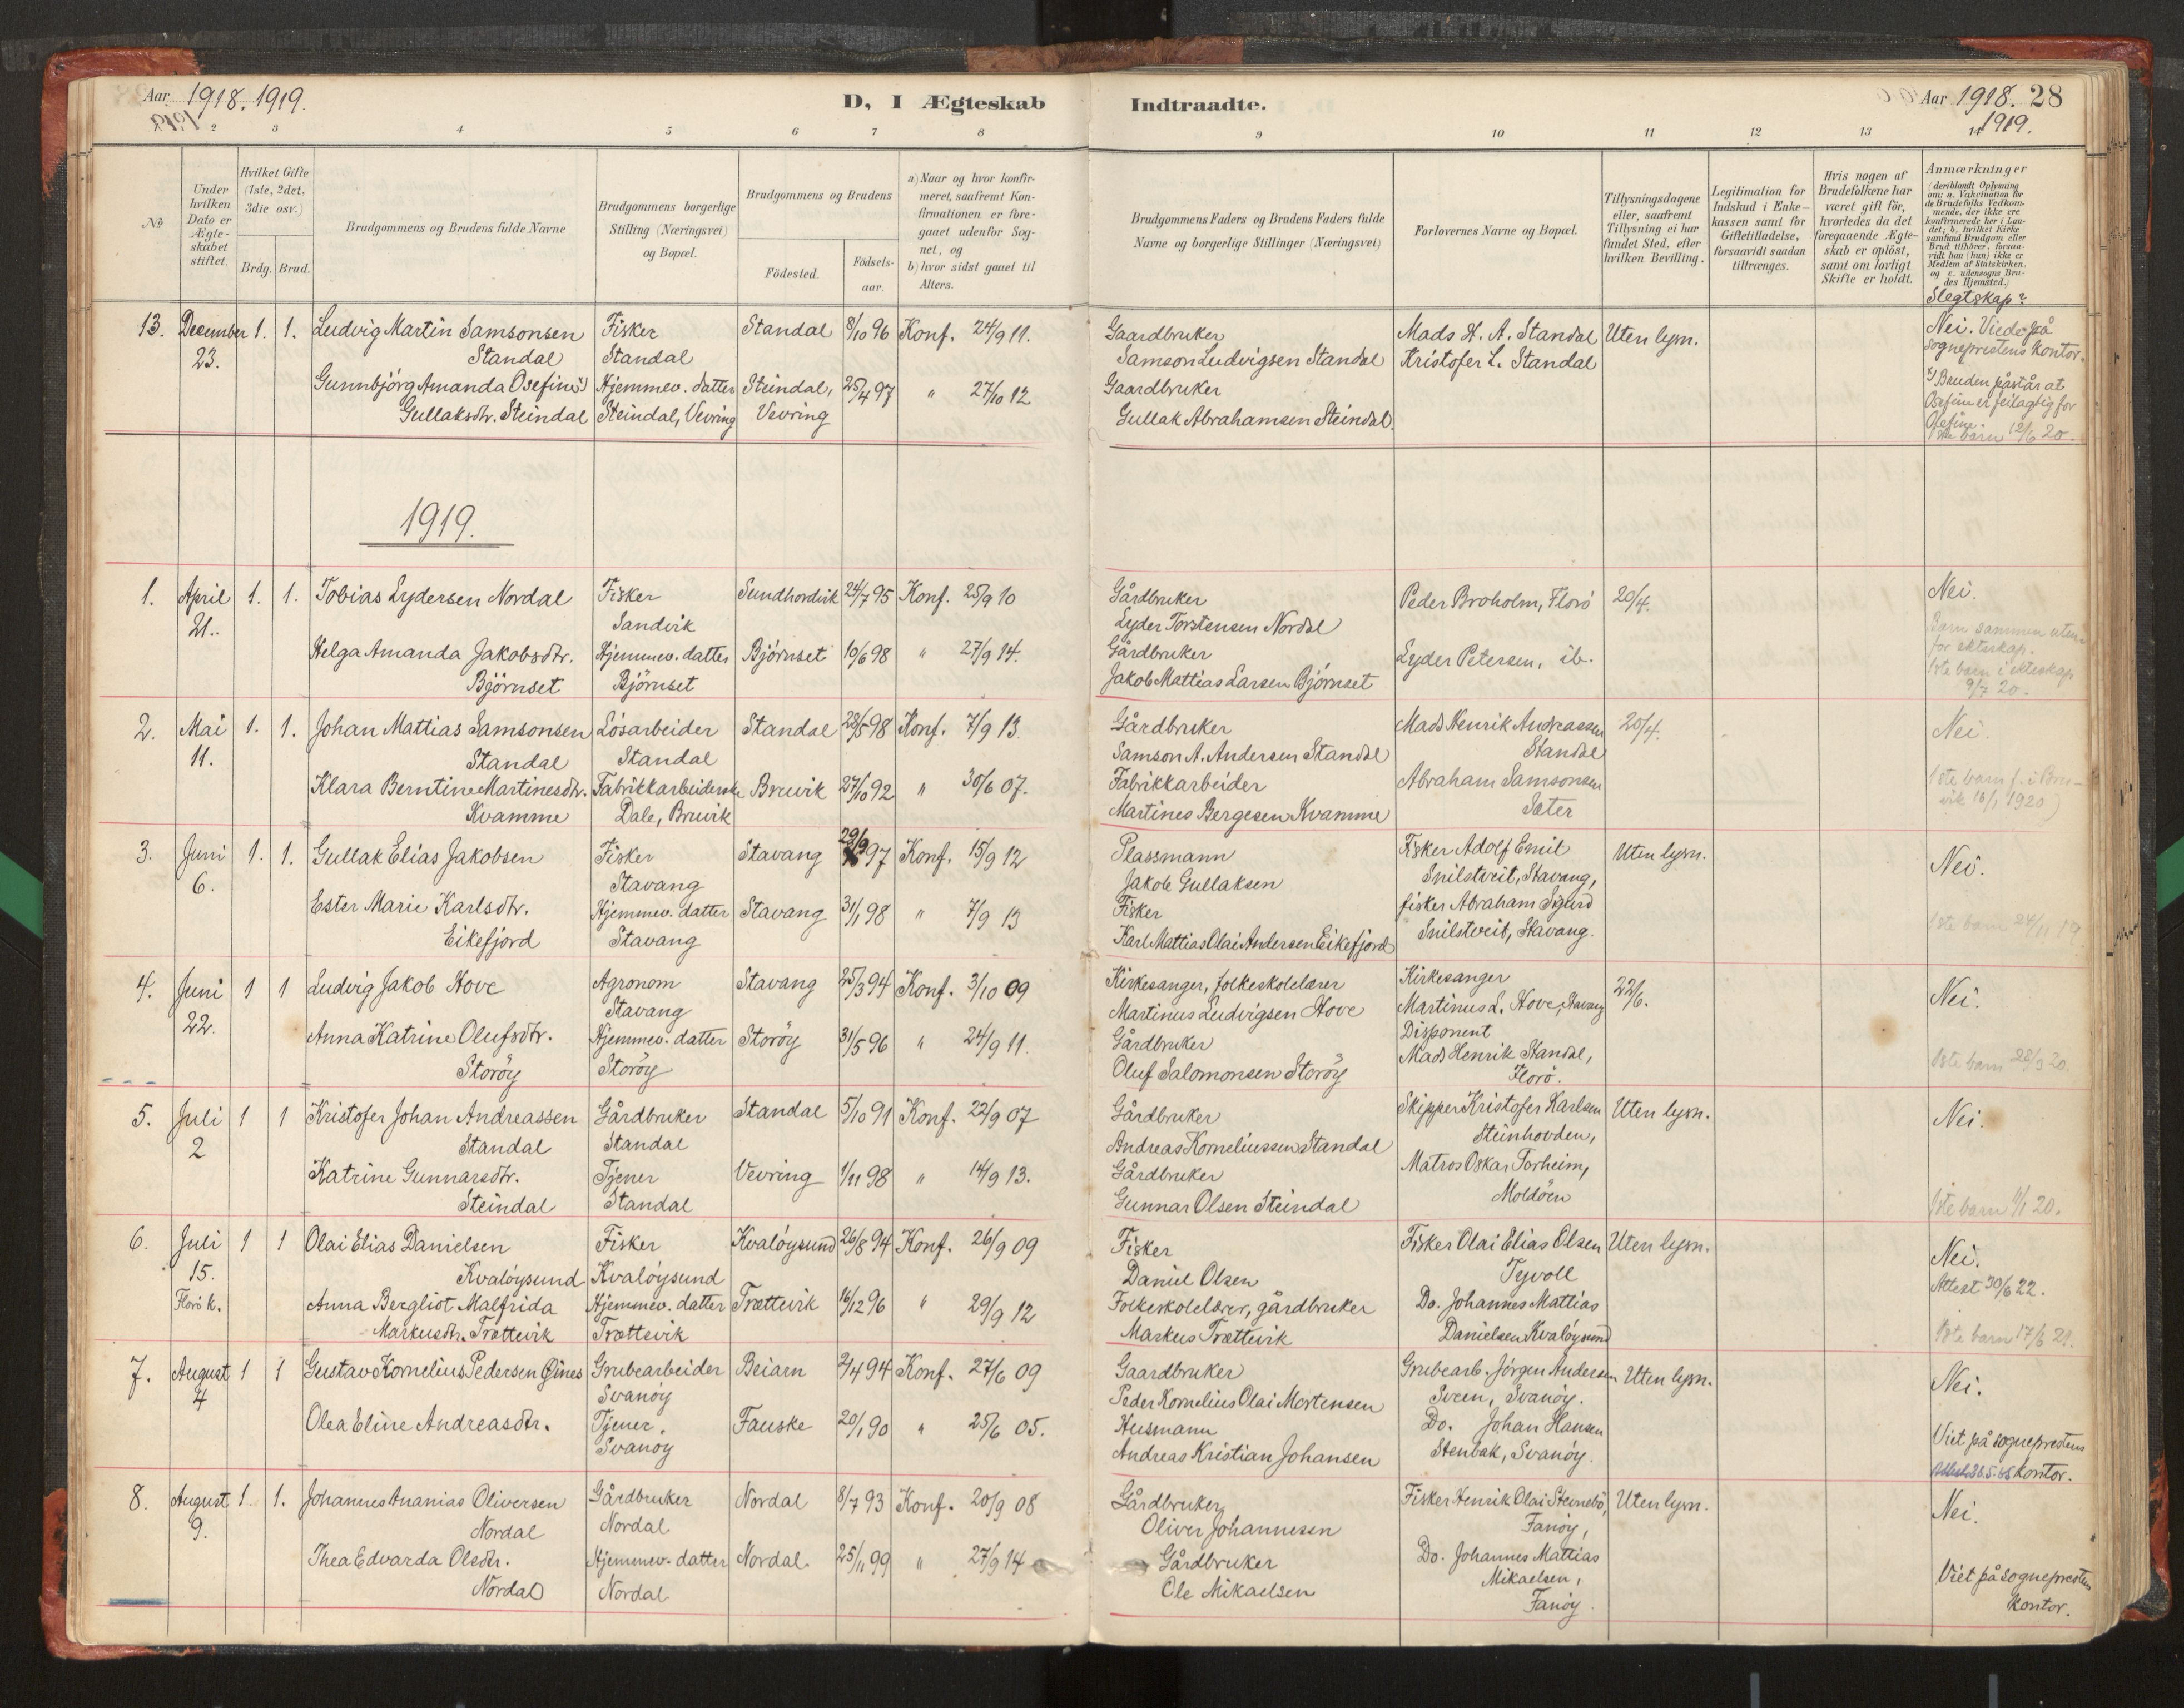 Aar 1918. 1919.
D, I Ægteskab
Indtraadte.
Aar 1918. 28
1919.
2 3 4 5 6 7 8 9 10 11 12 13 14
No
Under hvilken Dato er Ægteskabet stiftet.
Hvilket Gifte (1ste, 2det, 3die osv.)
Brdg. Brud.
Brudgommens og Brudens fulde Navne
Brudgommens borgerlige Stilling (Næringsvei) og Bopæl.
Brudgommens og Brudens
Födested.
Födsels-aar.
a) Naar og hvor konfirmeret, saafremt Konfirmationen er foregaaet udenfor Sognet, og
b) hvor sidst gaaet til Alters.
Brudgommens Faders og Brudens Faders fulde Navne og borgerlige Stillinger (Næringsvei)
Forlovernes Navne og Bopæl.
Tillysningsdagene eller, saafremt Tillysning ei har fundet Sted, efter hvilken Bevilling.
Legitimation for Indskud i Enkekassen samt for Giftetilladelse, forsaavidt saadan tiltrænges.
Hvis nogen af Brudefolkene har været gift för, hvorledes da det foregaaende Ægteskab er oplöst, samt om lovligt Skifte er holdt.
Anmærkninger
(deriblandt Oplysning om: a. Vakcination for de Brudefolks Vedkommende, der ikke ere konfirmerede her i Landet; b. hvilket Kirkesamfund Brudgom eller Brud tilhörer, forsaavidt han (hun) ikke er Medlem af Statskirken. og c. udensogns Brudes Hjemsted.)
Slegtskap?
13. December 1. 1. Ludvig Martin Samsonsen Fisker Standal 8/10 96 Konf. 24/9 11. Gaardbruker Mads H. A. Standal Uten lysn. Nei. Viede på
23. Standal Standal Samson Ludvigsen Standal Kristofer L. Standal sogneprestens kontor.
Gunnbjörg Amanda Osefine Hjemmev. datter Steindal, 25/4 97 " 27/10 12 Gaardbruker Bruden påstår at
Gullaksdtr. Steindal Steindal, Vevring Vevring Gullak Abrahamsen Steindal. Osefine er feilagtig for
Olefine.
1ste barn 12/6 20.
1919.
1. April 1. 1. Tobias Lydersen Nordal Fisker Sundhordvik 24/7 95 Konf. 25/9 10 Gårdbruker Peder Broholm, Florö 20/4. Nei.
21. Sandvik Lyder Torstensen Nordal Barn sammen uten-
for ekteskap.
Helga Amanda Jakobsdtr. Hjemmev. datter Björnset 10/6 98 " 27/9 14. Gårdbruker Lyder Petersen, ib. 1ste barn i ekteskap
Björnset Björnset Jakob Mattias Larsen Björnset 9/7 20.
2. Mai 1. 1. Johan Mattias Samsonsen Lösarbeider Standal 28/5 98 Konf. 7/9 13. Gårdbruker Mads Henrik Andreassen 20/4. Nei.
11. Standal Standal Samson A. Andersen Standal Standal
Klara Berntine Martinesdtr. Fabrikkarbeiderske Bruvik 27/10 92 " 30/6 07. Fabrikkarbeider Abraham Samsonsen 1ste barn f. i Bru-
Kvamme Dale, Bruvik Martines Bergesen Kvamme Sæter vik 16/1 1920)
3. Juni 1. 1. Gullak Elias Jakobsen Fisker Stavang 29/9 97 Konf. 15/9 12 Plassmann Fisker Adolf Emil Uten lysn. Nei.
6. Stavang Jakob Gullaksen Snilstveit, Stavang,
Ester Marie Karlsdtr. Hjemmev. datter Stavang 31/1 98 " 7/9 13 Fisker fisker Abraham Sigurd 1ste barn 24/11 19.
Eikefjord Stavang Karl Mattias Olai Andersen Eikefjord Snilstveit, Stavang.
4. Juni 1 1 Ludvig Jakob Hove Agronom Stavang 25/3 94 Konf. 3/10 09 Kirkesanger, folkeskolelærer Kirkesanger 22/6. Nei.
22. Stavang Martinus Ludvigsen Hove Martinus L. Hove, Stavang
Anna Katrine Olufsdtr. Hjemmev. datter Storöy 31/5 96 " 24/9 11. Gårdbruker Disponent
Storöy Storöy Oluf Salomonsen Storöy Mads Henrik Standal, 1ste barn 22/3 20.
Florö.
5. Juli 1 1 Kristofer Johan Andreassen Gårdbruker Standal 5/10 91 Konf. 22/9 07 Gårdbruker Skipper Kristofer Karlsen Uten lysn. Nei.
2 Standal Standal Andreas Korneliussen Standal Steinhovden,
Katrine Gunnarsdtr. Tjener Vevring 1/11 98 " 14/9 13. Gårdbruker Matros Oskar Torheim,
Steindal Standal Gunnar Olsen Steindal Moldöen 1ste barn 1/1 20.
6. Juli 1 1 Olai Elias Danielsen Fisker Kvalöysund 26/8 94 Konf. 26/9 09 Fisker Fisker Olai Elias Olsen Uten lysn. Nei.
15. Kvalöysund Kvalöysund Daniel Olsen Tyvoll Attest 30/6 22.
Florö k. Anna Bergliot Malfrida Hjemmev. datter Trættevik 16/12 96 " 29/9 12 Folkeskolelærer, gårdbruker Do. Johannes Mattias
Markusdtr. Trættevik Trættevik Markus Trættevik Danielsen Kvalöysund 1ste barn 17/6 21.
7. August 1 1 Gustav Kornelius Pedersen Öines Grubearbeider Beiarn 2/4 94 Konf. 27/6 09 Gaardbruker Grubearb. Jörgen Andersen Uten lysn. Nei.
4 Svanöy Peder Kornelius Olai Mortensen Sveen, Svanöy.
Olea Eline Andreasdtr. Tjener, Fauske 20/1 90 " 25/6 05. Husmann Do. Johan Hansen Viet på sogneprestens
Svanöy Andreas Kristian Johansen Stenbak, Svanöy. kontor.
8. August 1. 1. Johannes Ananias Oliversen Gårdbruker Nordal 8/7 93 Konf. 20/9 08 Gårdbruker Fisker Henrik Olai Steinebö, Uten lysn. Nei.
9. Nordal Nordal Oliver Johannesen Fanöy,
Thea Edvarda Olsdtr. Hjemmev. datter Nordal 25/11 99 " 27/9 14 Gårdbruker Do. Johannes Mattias Viet på sogneprestens
Nordal Nordal Ole Mikaelsen Mikaelsen, kontor.
Fanöy.